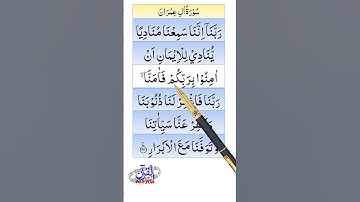 سُوْرَةُ اٰلِ عِمْرَانَ
رَبَّنَاۤ اِنَّنَا سَمِعْنَا مُنَادِيًا
يُّنَادِيْ لِلْاِيْمَانِ اَنْ
اٰمِنُوْا بِرَبِّكُمْ فَاٰمَنَّا
رَبَّنَا فَاغْفِرْ لَنَا ذُنُوْبَنَا
عَنَّا سَيِّاٰتِنَا
وَتَوَفَّنَا مَعَ الْاَبْرَارِ
القرآن